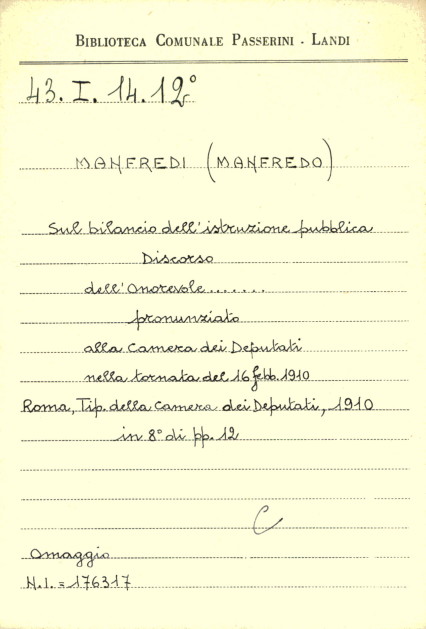 BIBLIOTECA COMUNALE PASSERINI - LANDI
43. I. 14. 12°
MANFREDI (MANFREDO)
Sul bilancio dell'istruzione pubblica
Discorso
dell'Onorevole.......
pronunziato
alla Camera dei Deputati
nella tornata del 16 febb. 1910
Roma, Tip. della Camera dei Deputati, 1910
in 8° di pp. 12
C
Omaggio
N.I. = 176317